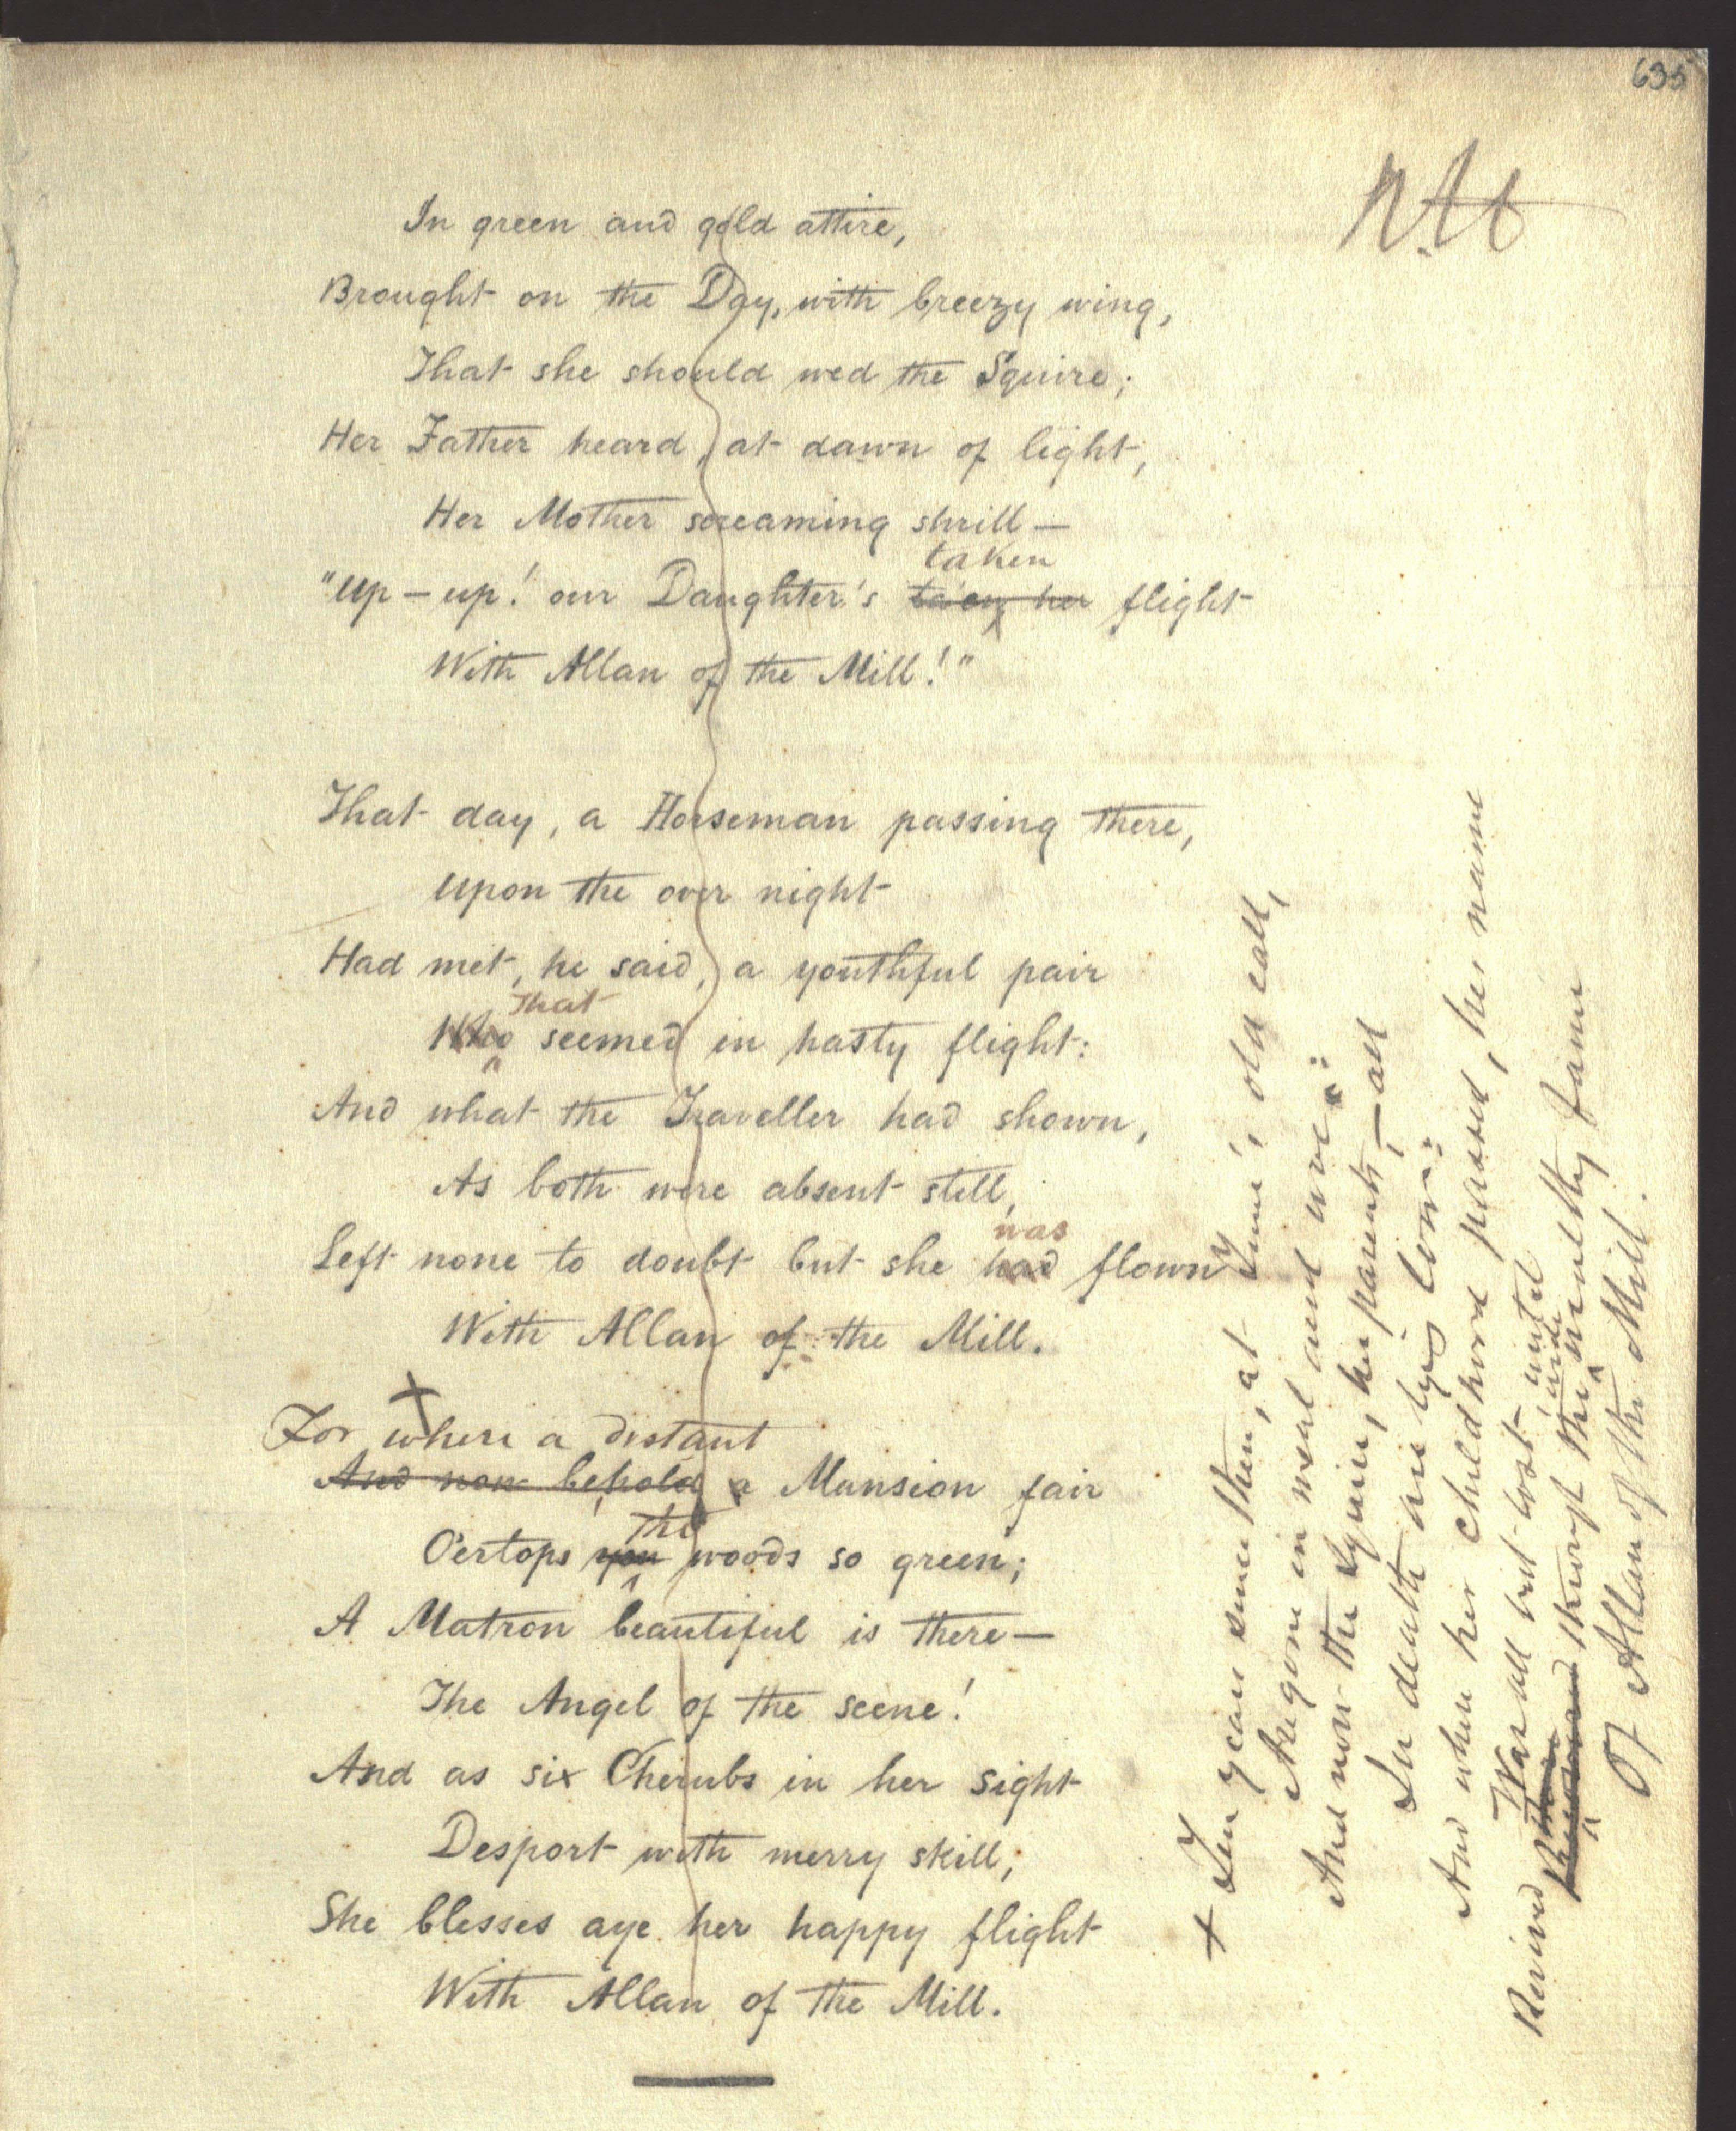 635
In green and gold attire,
Brought on the Day, with breezy wing,
That she should wed the Squire;
Her Father heard, at dawn of light,
Her Mother screaming shrill—
taken
"Up – up! our Daughter's ta'en her flight
With Allan of the Mill!"
That day, a Horseman passing there,
Upon the over night
Had met, he said, a youthful pair
That
Who seemed in hasty flight:
And what the Traveller had shown,
As both were absent still,
was
Left none to doubt but she had flown
With Allan of the Mill.
+
For where a distant
And now behold a Mansion fair
the
O'ertops yon woods so green;
A Matron beautiful is there—
The Angel of the scene!
And as six Cherubs in her sight
Desport with merry skill;
She blesses aye her happy flight
With Allan of the Mill.
+ Ten years since then, at Time's old call,
Are gone in weal and woe:
And now the Squire, her parents,—all
In death are lying low:
And when her childhood passed, her name
Was all but lost until
Revived
through the wealthy fame
Of Allan of the Mill.